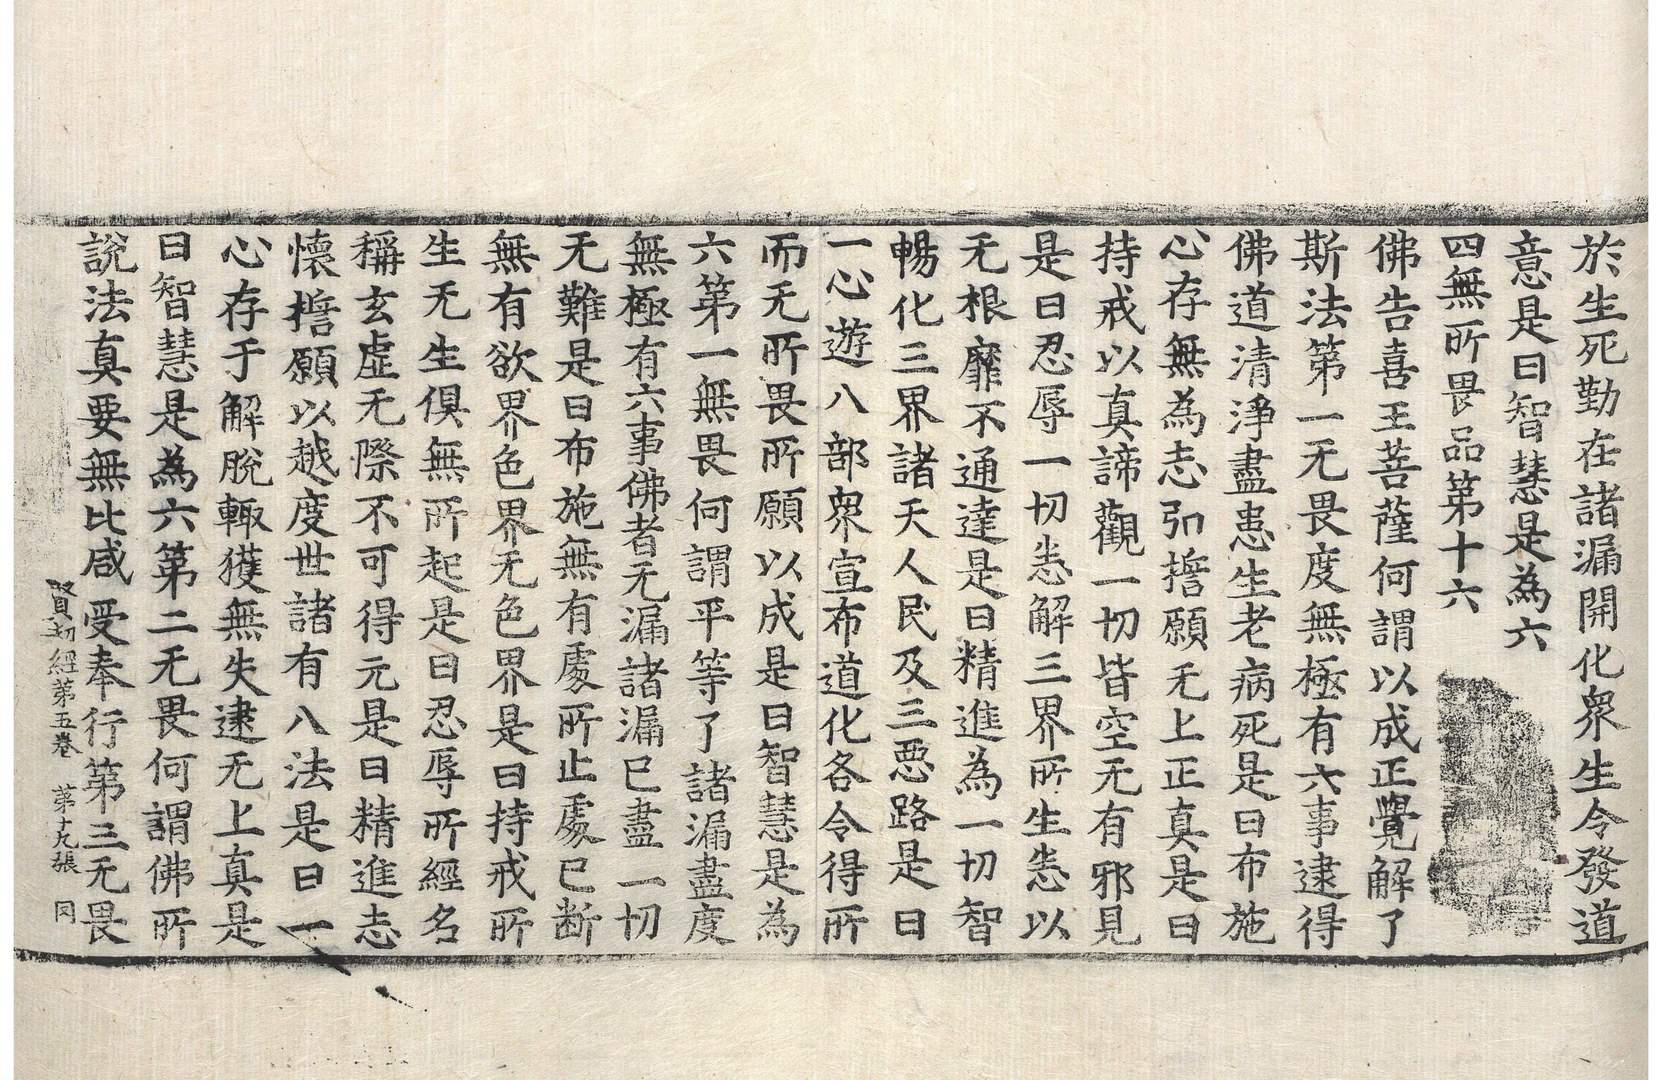 於生死勤在諸漏開化衆生令發道
意是曰智慧是為六
四無所畏品第十六
佛告喜王菩薩何謂以成正覺解了
斯法第一无畏度無極有六事逮得
佛道清淨盡患生老病死是曰布施
心存無為志弘擔願无上正真是曰
持戒以真諦觀一切皆空无有邪見
是曰忍辱一切恙解三界所生恙以
无根靡不通達是曰精進為一切智
暢化三界諸天人民及三惡路是曰
一心遊八部衆宣布道化各令得所
而无所畏所願以成是曰智慧是為
六第一無畏何謂平等了諸漏盡度
無極有六事佛者无漏諸漏已盡一切
无難是曰布施無有處所止處已断
無有欲界色界无色界是曰持戒所
生无生俱無所起是曰忍辱所經名
稱玄虛无際不可得元是曰精進志
懷擔願以越度世諸有八法是曰一
心存于解脫輙獲無失逮无上真是
曰智慧是為六第二无畏何謂佛所
說法真要無比咸受奉行第三无畏
賢劫經第五卷 第十九張 同